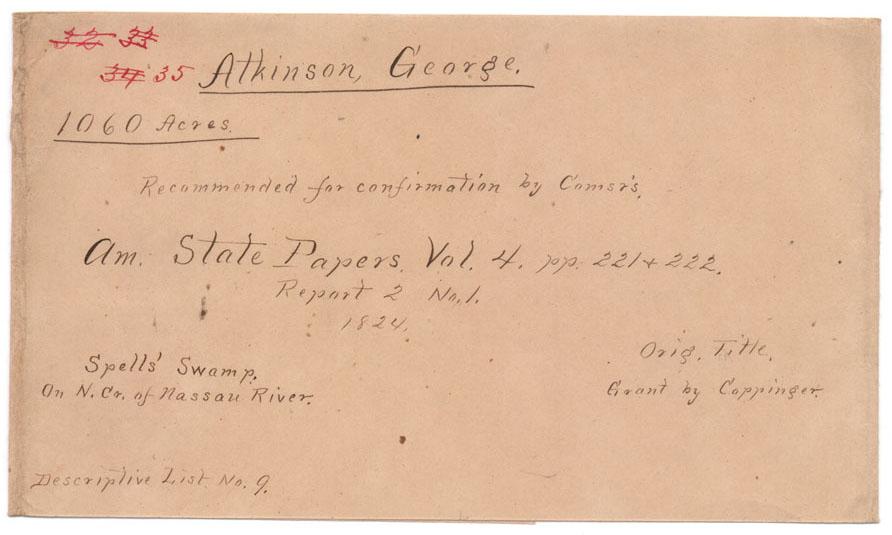 32 33
34 35 Atkinson, George.
1060 Acres.
Recommended for confirmation by Comsr's.
Am. State Papers. Vol. 4. pp. 221 + 222.
Report 2 No. 1.
1824.
Spells' Swamp.
On N. Cr. of Nassau River.
Orig. Title.
Grant by Coppinger.
Descriptive List No. 9.